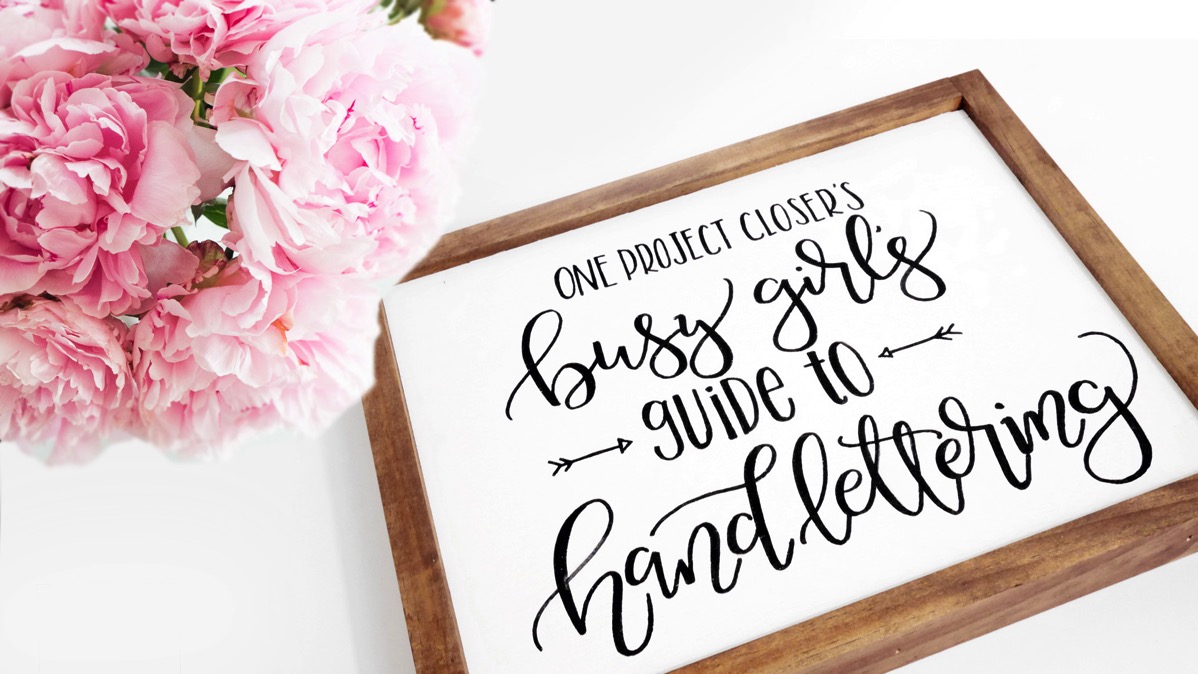 ONE PROJECT CLOSER'S
busy girl's
GUIDE to
handlettering